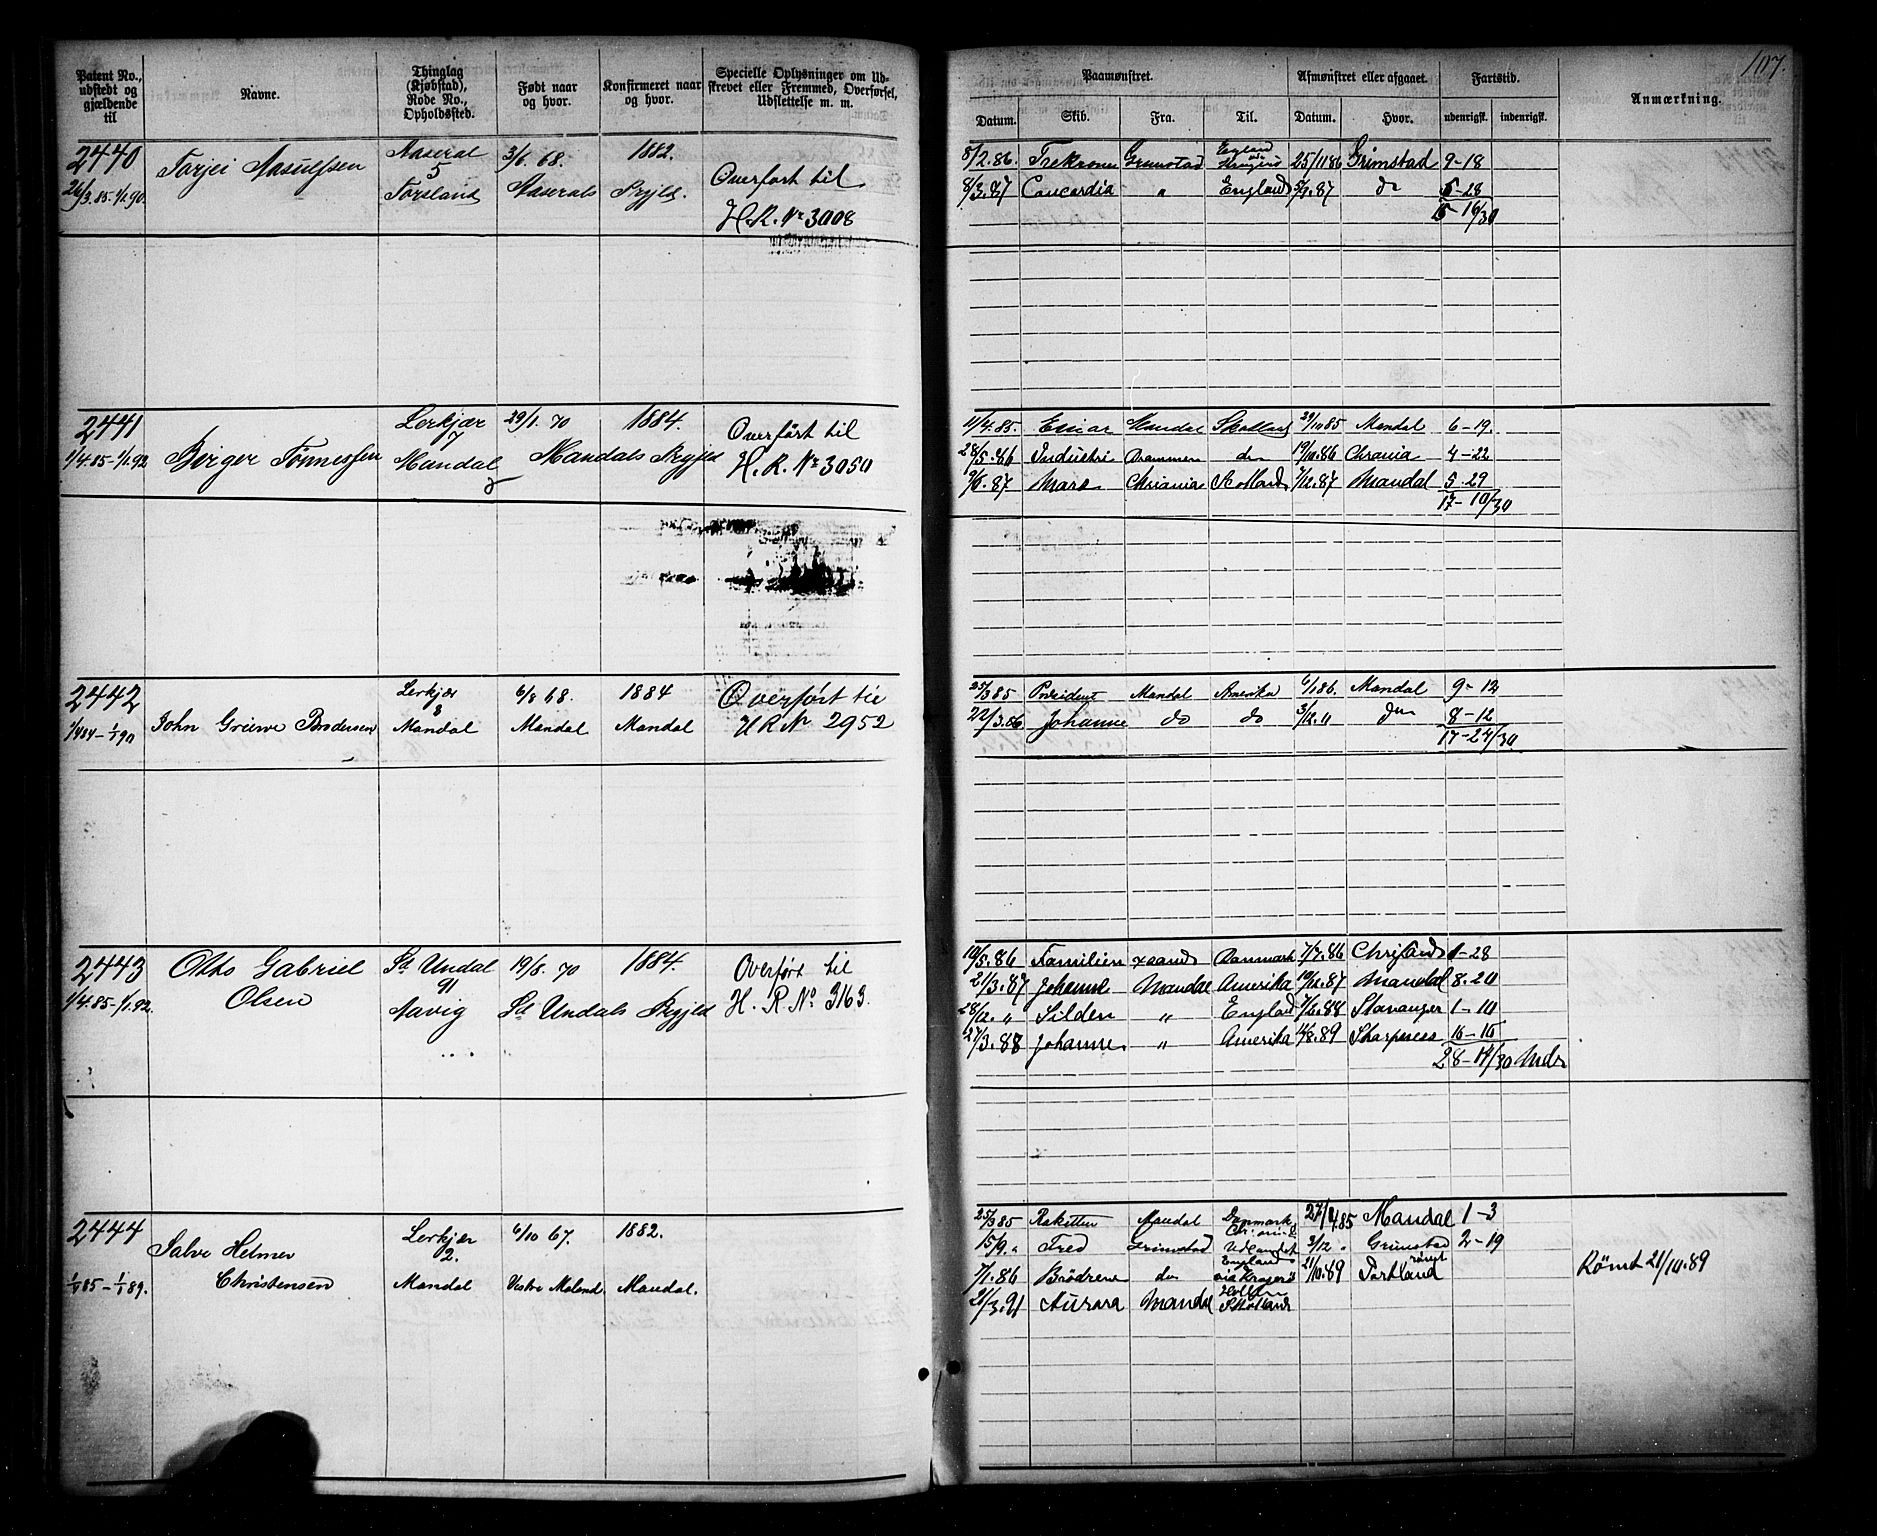 107.
Patent No., udstedt og gjældende til
Navne.
Thinglag (Kjøbstad), Rode No., Opholdssted.
Født naar og hvor.
Konfirmeret naar og hvor.
Specielle Oplysninger om Udskrevet eller Fremmed, Overførsel, Udslettelse m. m.
Paamønstret.
Afmønstret eller afgaaet.
Fartstid.
Anmærkning.
Datum. Skib. Fra. Til. Datum. Hvor. udenrigsk. indenrigsk.
2440
26/3.85-1/1.90.
Torjei Aasulfsen
Aaseral
5
Torsland
3/6. 68.
Aaserals
1882.
Prgjld.
Overført til
H. R. Nr 3008
8/2.86. Trekroner Grimstad England 25/11 86 Grimstad 9-18
8/3.87 Concordia " England 5/9.87 do 5-28
15-16/30
2441
1/4.85-1/1.92
Birger Tønnessen
Lerkjær
7
Mandal
29/1. 70
Mandals
1884.
Prgjld
Overført til
H. R. Nr 3050
11/4.85. Einar Mandal Skotland 29/10 85 Mandal 6-19.
28/5.86 Industri Drammen do 19/10.86 Chrania 4-22
9/6.87 Mars Chriania Skotland 7/12.87 Mandal 5.29
17-10/30
2442
1/4 84-1/1 90
John Griewe Brodersen
Lerkjær
8
Mandal
6/8 68.
Mandal
1884
Mandal
Overført til
H R Nr 2952
25/3 85 President Mandal Amerika 6/1 86. Mandal 9-12
22/3.86 Johanne do do 3/12. " do 8-12
17-24/30
2443
1/4.85-1/1.92.
Otto Gabriel
Olsen
Sd Undal
91
Aavig
19/8. 70
Sd Undals
1884.
Prgjld
Overført til
H. R. No. 3163.
19/5.86 Familien xsand Danmark 7/7.86 Chrisand 1-28
21/3.87 Johanne Mandal Amerika 19/12.87 Mandal 8.20
28/12. " Silden " England 7/2.88 Stavanger 1-10
27/3.88 Johanne " Amerika 14/8.89 Sharpness 16-16
28-14/30 Mdr
2444
1/4 85-1/1 89.
Salve Helmer
Christensen
Lerkjær
2.
Mandal
6/10 67.
Vestre Moland
1882.
Mandal.
25/3 85 Raketten Mandal Danmark 27/4 85 Mandal 1-3
15/9. " Fred Grimstad Udlandet 3/12 " Grimstad 2-19
7/1.86 Brödrene do England via Kragerø 21/10.89 rømt Portland
21/3.91 Aurora Mandal Skotland
Rømt 21/10.89